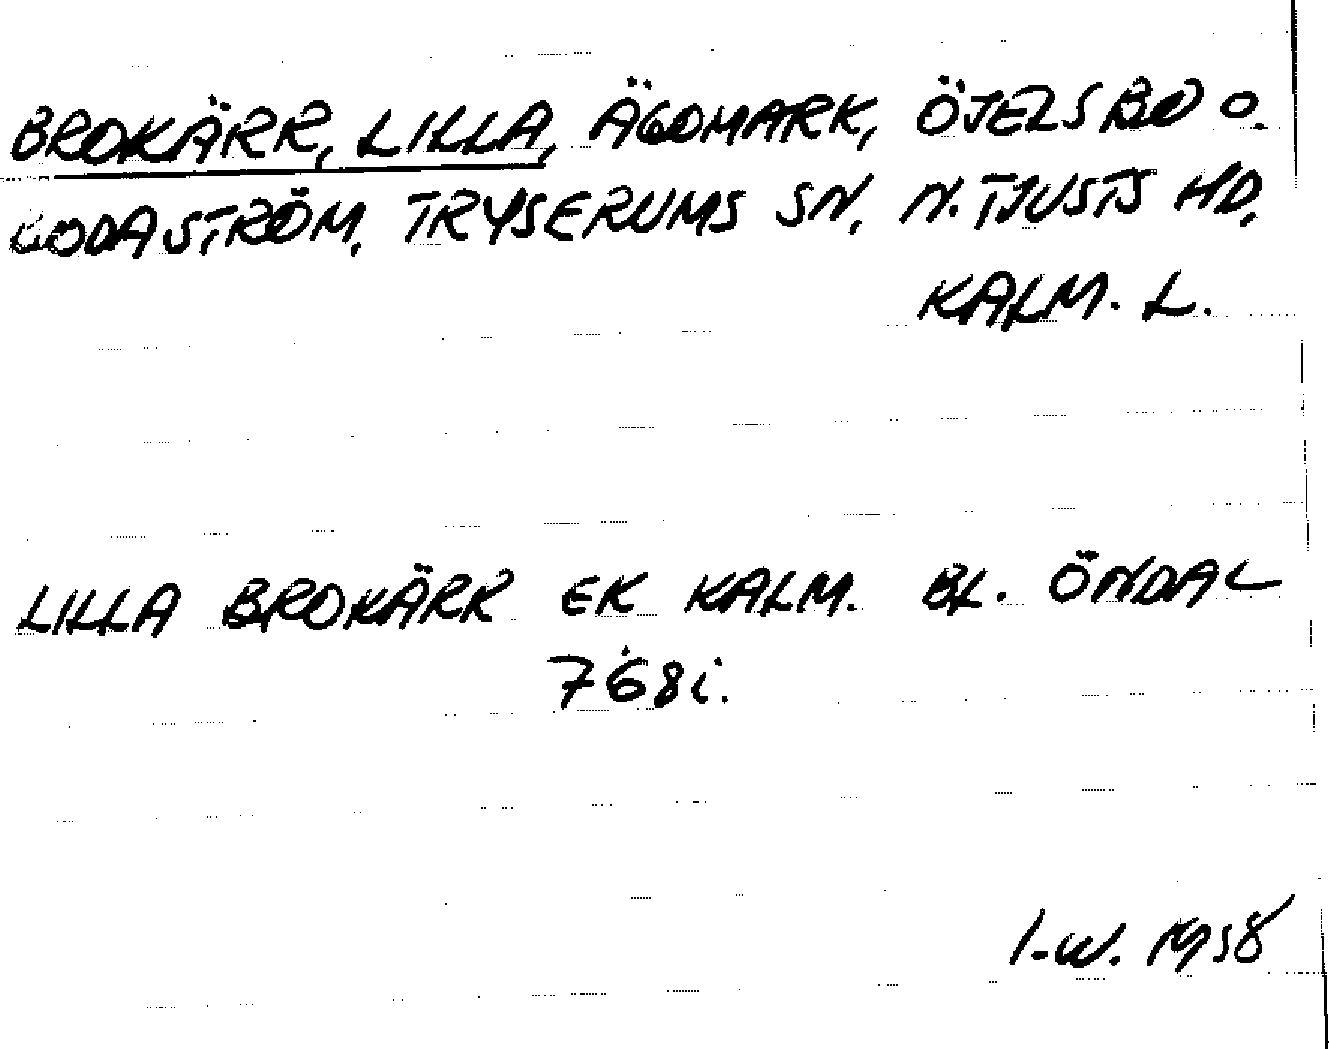 BROKÄRR, LILLA, ÄGOMARK, ÖJELSBO O.
GODASTRÖM, TRYSERUMS SN, N. TJUSTS HD,
KALM. L.
LILLA BROKÄRR EK KALM. BL. ÖNDAL
768i.
I.W. 1958